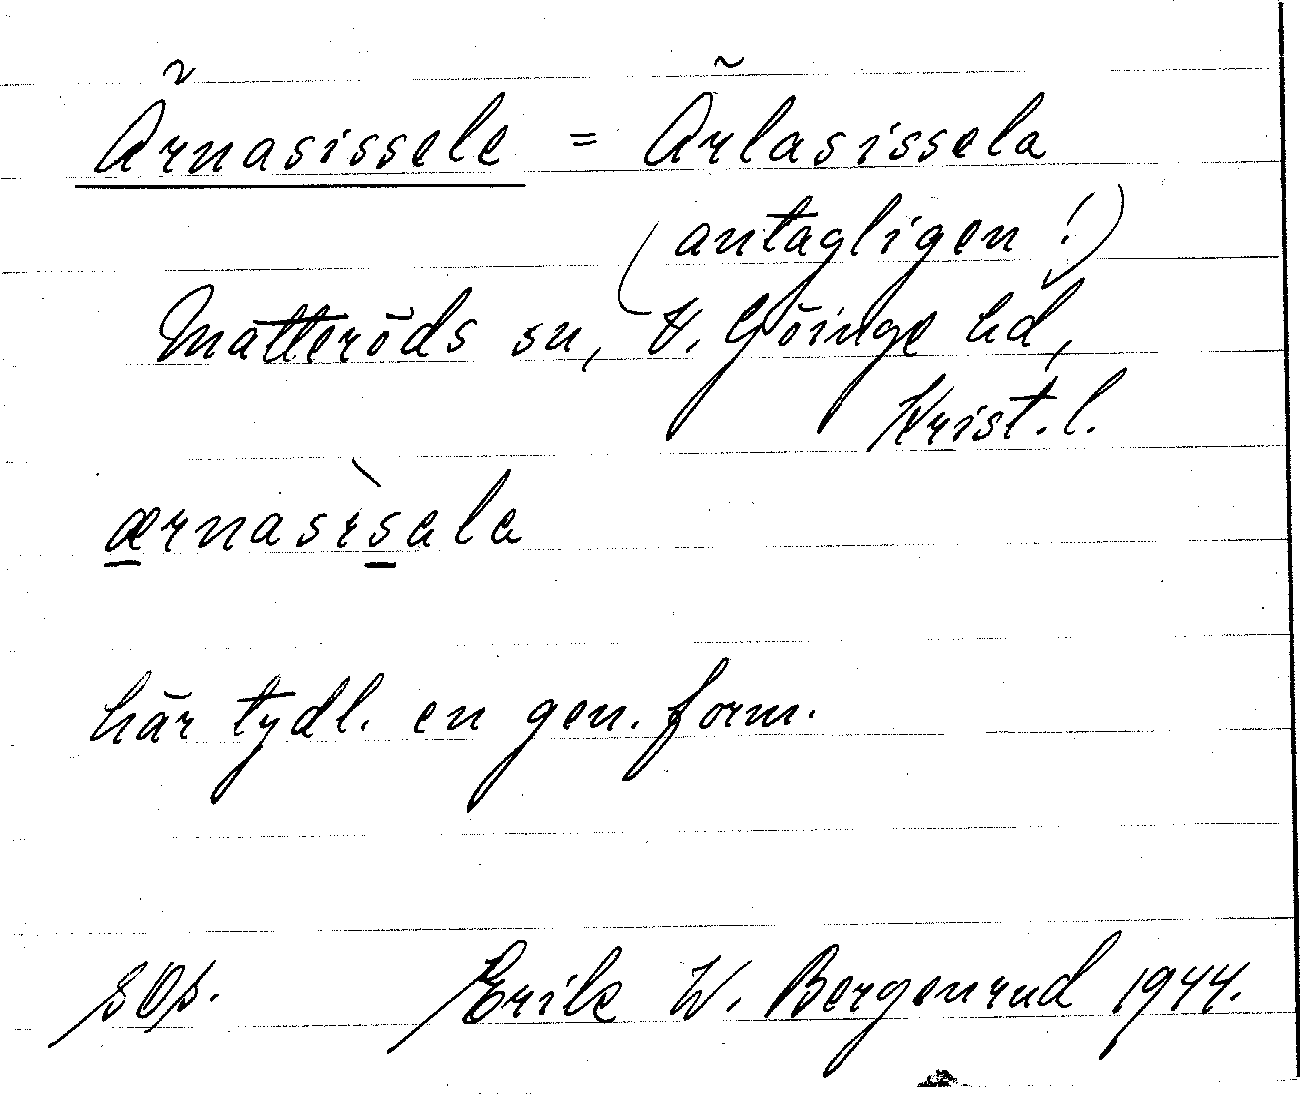 Ärnasissele = Ärlasissela
(antagligen!)
Matteröds sn, V. Göinge hd,
Krist. l.
ærnasìsala
här tydl. en gen. form.
sep. Erik W. Bergenrud 1944.